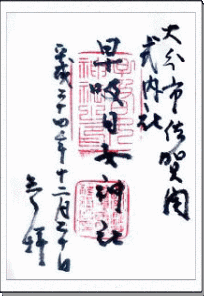 大分市佐賀関
式内社
早吸日女神社
平成二十四年十二月三十日